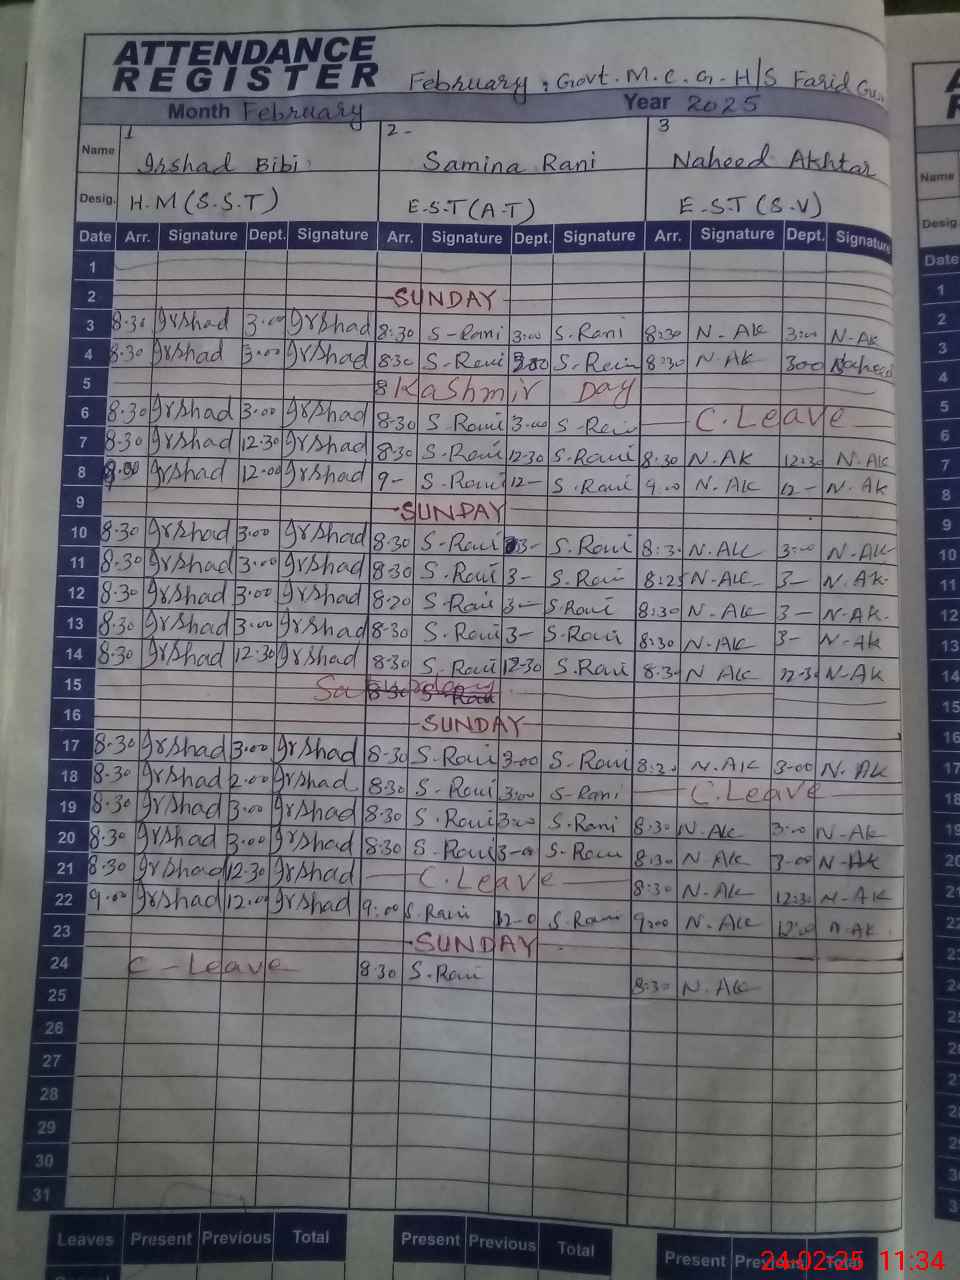 ATTENDANCE
REGISTER
February : Govt. M.C.G-H/S Farid
Month February Year 2025
1 2- 3
Name Irshad Bibi Samina Rani Naheed Akhtar
Desig. H.M(S.S.T) E.S.T(A-T) E.S.T(S-V)
Date Arr. Signature Dept. Signature Arr. Signature Dept. Signature Arr. Signature Dept. Signature
1
2 SUNDAY
3 8.30 Irshad 3.00 Irshad 8:30 S-Rani 3:00 S.Rani 8:30 N-AK 3:00 N-AK
4 8.30 Irshad 3.00 Irshad 8:30 S.Rani 3:00 S.Rani 8:30 N-AK 300 Naheed
5 8 Kashmir Day
6 8.30 Irshad 3.00 Irshad 8.30 S.Rani 3.00 S-Rani C.Leave
7 8.30 Irshad 12.30 Irshad 8.30 S.Rani 12-30 S.Rani 8:30 N.AK 12:30 N-AK
8 9.00 Irshad 12.00 Irshad 9- S.Rani 12- S.Rani 9.00 N-AK 12- N-AK
9 SUNDAY
10 8.30 Irshad 3.00 Irshad 8.30 S-Rani 3- S.Rani 8:3- N-AK 3:00 N-AK
11 8.30 Irshad 3.00 Irshad 8.30 S.Rani 3- S.Rani 8:25 N-AK 3- N.AK-
12 8.30 Irshad 3.00 Irshad 8.20 S.Rani 3- S.Rani 8:30 N-AK 3- N-AK-
13 8.30 Irshad 3.00 Irshad 8-30 S.Rani 3- S.Rani 8:30 N-AK 3- N-AK
14 8.30 Irshad 12.30 Irshad 8.30 S.Rani 12-30 S.Rani 8.3- N AK 12-3- N-AK
15
16 SUNDAY
17 8.30 Irshad 3.00 Irshad 8-30 S.Rani 3-00 S.Rani 8:2- N.AK 3-00 N.AK
18 8.30 Irshad 2.00 Irshad 8:30 S.Rani 3:00 S-Rani C.Leave
19 8.30 Irshad 3.00 Irshad 8.30 S.Rani 3:00 S.Rani 8:30 N-AK 3:00 N-AK
20 8.30 Irshad 3.00 Irshad 8:30 S.Rani 3-0 S.Rani 8:30 N-AK 3-00 N-AK
21 8.30 Irshad 12.30 Irshad C.Leave 8:30 N-AK 12:30 N-AK
22 9.00 Irshad 12.00 Irshad 9:00 S.Rani 12-0 S.Rani 9:00 N-AK 12:00 N-AK
23 SUNDAY
24 C-Leave 8.30 S.Rani 8:30 N.AK
25
26
27
28
29
30
31
Leaves Present Previous Total Present Previous Total Present Previous Total
24.02.25 11:34
Name
Desig.
Date
1
2
3
4
5
6
7
8
9
10
11
12
13
14
15
16
17
18
19
20